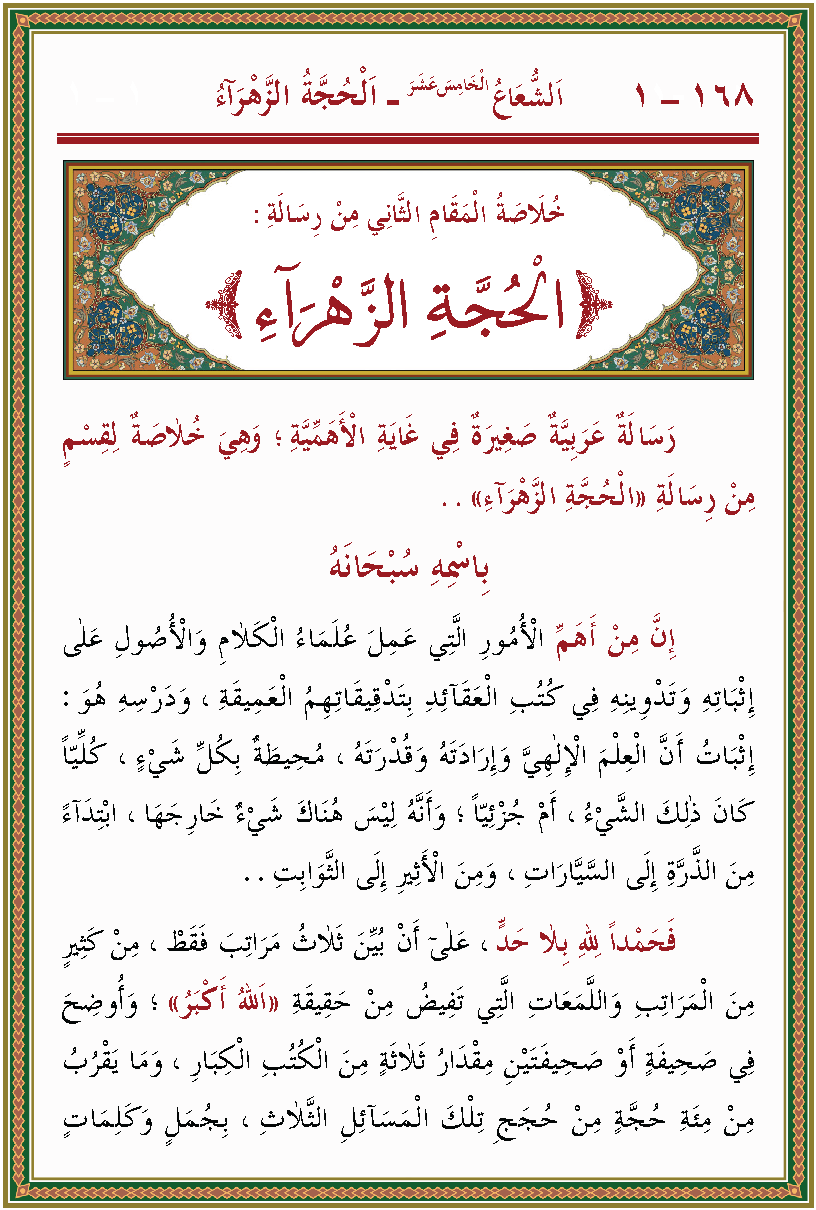 ١٦٨ – ١ اَلشُّعَاعُ الْخَامِسَ عَشَرَ - اَلْحُجَّةُ الزَّهْرَآءُ
خُلَاصَةُ الْمَقَامِ الثَّانِي مِنْ رِسَالَةِ :
﴿ الْحُجَّةِ الزَّهْرَآءِ ﴾
رَسَالَةٌ عَرَبِيَّةٌ صَغِيرَةٌ فِي غَايَةِ الْأَهَمِّيَّةِ ؛ وَهِيَ خُلَاصَةٌ لِقِسْمٍ
مِنْ رِسَالَةِ «الْحُجَّةِ الزَّهْرَآءِ» . .
بِاسْمِهِ سُبْحَانَهُ
إِنَّ مِنْ أَهَمِّ الْأُمُورِ الَّتِي عَمِلَ عُلَمَاءُ الْكَلَامِ وَالْأُصُولِ عَلٰى
إِثْبَاتِهِ وَتَدْوِينِهِ فِي كُتُبِ الْعَقَآئِدِ بِتَدْقِيقَاتِهِمُ الْعَمِيقَةِ ، وَدَرْسِهِ هُوَ :
إِثْبَاتُ أَنَّ الْعِلْمَ الْإِلٰهِيَّ وَإِرَادَتَهُ وَقُدْرَتَهُ ، مُحِيطَةٌ بِكُلِّ شَيْءٍ ، كُلِّيّاً
كَانَ ذٰلِكَ الشَّيْءُ ، أَمْ جُزْئِيّاً ؛ وَأَنَّهُ لَيْسَ هُنَاكَ شَيْءٌ خَارِجَهَا ، ابْتِدَآءً
مِنَ الذَّرَّةِ إِلَى السَّيَّارَاتِ ، وَمِنَ الْأَثِيرِ إِلَى الثَّوَابِتِ . .
فَحَمْداً لِلّٰهِ بِلَا حَدٍّ ، عَلٰٓى أَنْ بُيِّنَ ثَلَاثُ مَرَاتِبَ فَقَطْ ، مِنْ كَثِيرٍ
مِنَ الْمَرَاتِبِ وَاللَّمَعَاتِ الَّتِي تَفِيضُ مِنْ حَقِيقَةِ «اَللّٰهُ أَكْبَرُ» ؛ وَأُوضِحَ
فِي صَحِيفَةٍ أَوْ صَحِيفَتَيْنِ مِقْدَارُ ثَلَاثَةٍ مِنَ الْكُتُبِ الْكِبَارِ ، وَمَا يَقْرُبُ
مِنْ مِئَةِ حُجَّةٍ مِنْ حُجَجِ تِلْكَ الْمَسَآئِلِ الثَّلَاثِ ، بِجُمَلٍ وَكَلِمَاتٍ